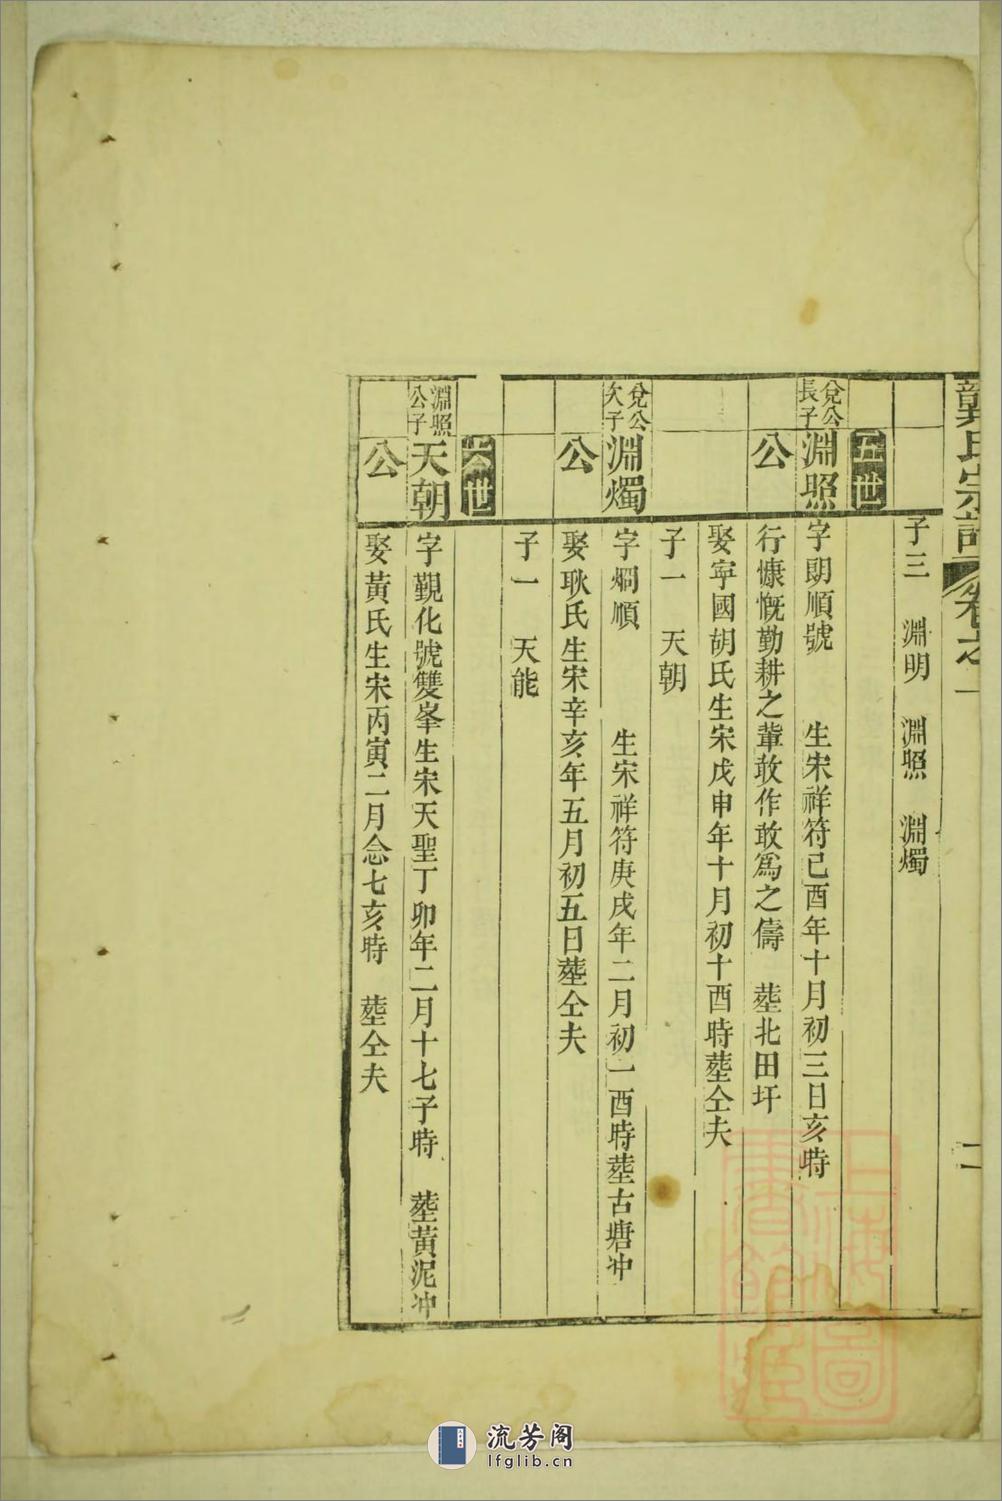 龔氏宗譜 卷之一 二
子三 淵明 淵照 淵燭
五世
兌公長子 淵照公
字朗順號 生宋祥符己酉年十月初三日亥時
行慷慨勤耕之輩敢作敢爲之儔 塟北田圩
娶寜國胡氏生宋戊申年十月初十酉時塟仝夫
子一 天朝
兌公次子 淵燭公
字燗順 生宋祥符庚戌年二月初一酉時塟古塘冲
娶耿氏生宋辛亥年五月初五日塟仝夫
子一 天能
六世
淵照公子 天朝公
字覲化號雙峯生宋天聖丁卯年二月十七子時 塟黃泥冲
娶黃氏生宋丙寅二月念七亥時 塟仝夫
上海圖書館藏
流芳阁
lfglib.cn